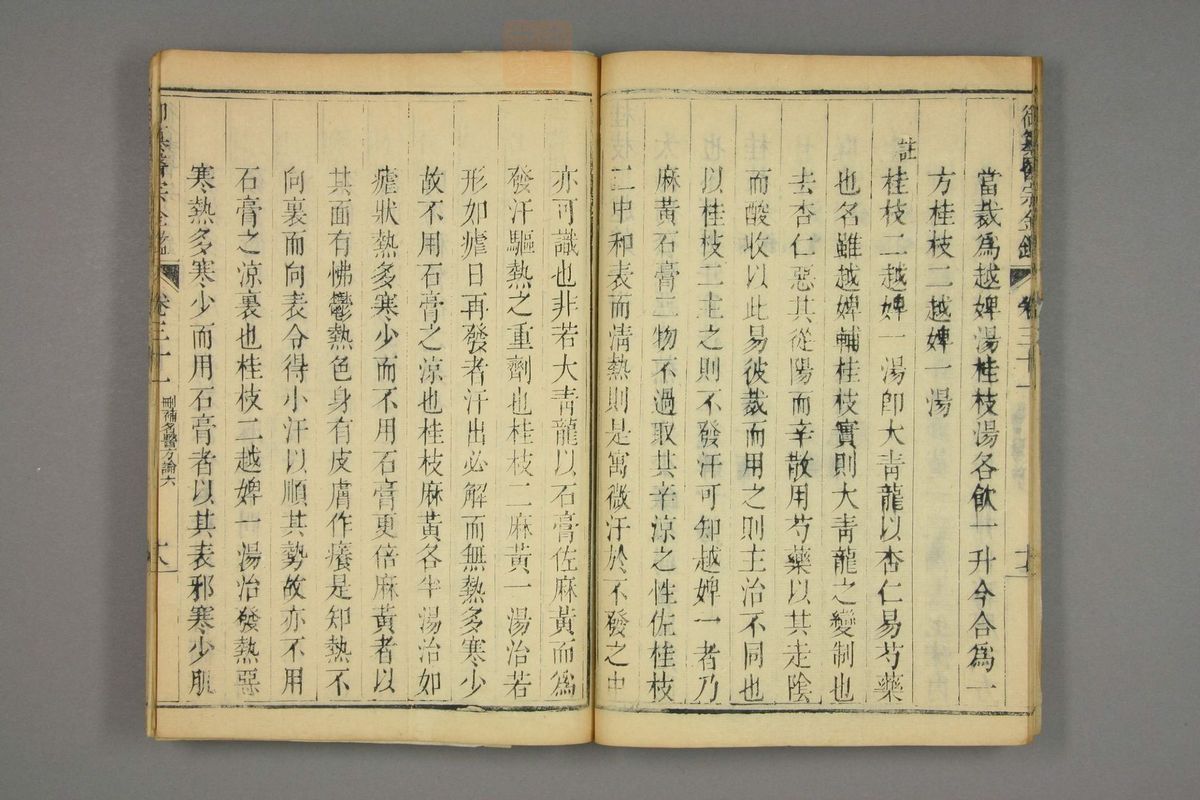 御纂醫宗金鑑 卷三十一
當裁為越婢湯桂枝湯各飲一升今合為一
方桂枝二越婢一湯
註桂枝二越婢一湯卽大青龍以杏仁易芍藥
也名雖越婢輔桂枝實則大青龍之變制也
去杏仁惡其從陽而辛散用芍藥以其走陰
而酸收以此易彼裁而用之則主治不同也
以桂枝二主之則不發汗可知越婢一者乃
麻黃石膏二物不過取其辛涼之性佐桂枝
二中和表而清熱則是寓微汗於不發之中
亦可識也非若大青龍以石膏佐麻黃而為
發汗驅熱之重劑也桂枝二麻黃一湯治若
形如瘧日再發者汗出必解而無熱多寒少
故不用石膏之涼也桂枝麻黃各半湯治如
瘧狀熱多寒少而不用石膏更倍麻黃者以
其面有怫鬱熱色身有皮膚作癢是知熱不
向裏而向表令得小汗以順其勢故亦不用
石膏之涼裏也桂枝二越婢一湯治發熱惡
寒熱多寒少而用石膏者以其表邪寒少肌
御纂醫宗金鑑 卷三十一 刪補名醫方論六 十八